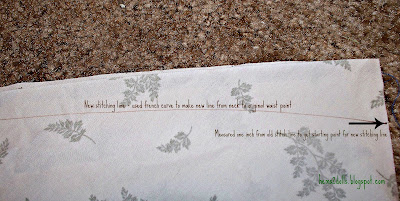 New stitching line - used french curve to make new line from neck to original waist point
Measured one inch from old stitch line to get starting point for new stitching line
hems&dolls.blogspot.com